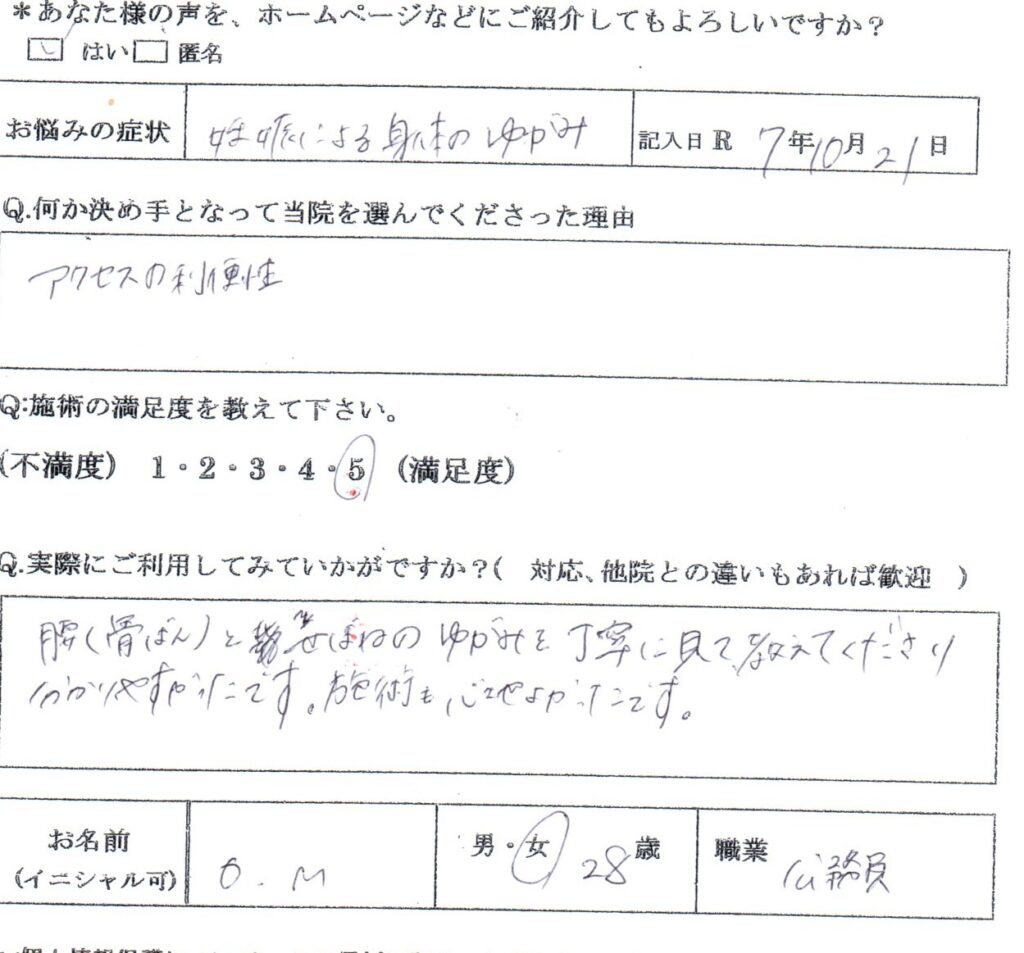 ＊あなた様の声を、ホームページなどにご紹介してもよろしいですか？
☑ はい □ 匿名
お悩みの症状 妊娠による身体のゆがみ 記入日 R 7年10月21日
Q.何か決め手となって当院を選んでくださった理由
アクセスの利便性
Q:施術の満足度を教えて下さい。
(不満度) 1・2・3・4・5 (満足度)
Q.実際にご利用してみていかがですか？( 対応、他院との違いもあれば歓迎 )
腰(骨ばん)と背ぼねのゆがみを丁寧に見て、教えてくださり
分かりやすかったです。施術も心地よかったです。
お名前 O.M 男・女 28歳 職業 公務員
(イニシャル可)